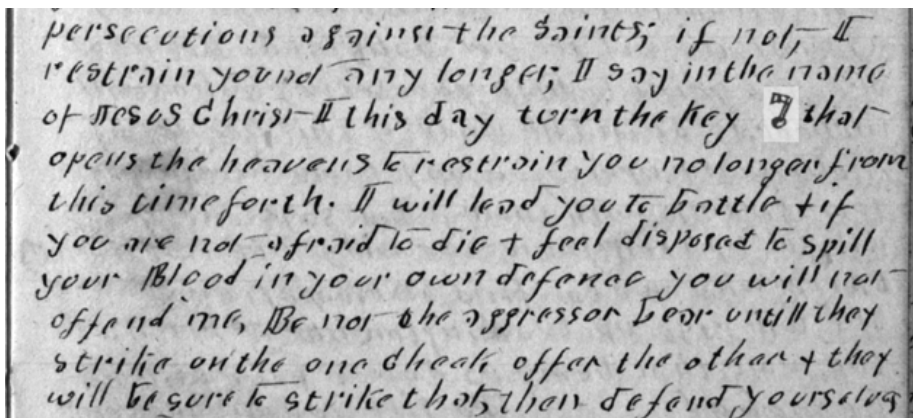 persecutions against the Saints; if not, I
restrain you not any longer; I say in the name
of Jesus Christ I this day turn the Key that
opens the heavens to restrain you no longer from
this time forth. I will lead you to battle + if
you are not afraid to die + feel disposed to spill
your Blood in your own defence you will not
offend me, Be not the aggressor bear untill they
strike on the one cheek offer the other + they
will be sure to strike that, then defend yourselves